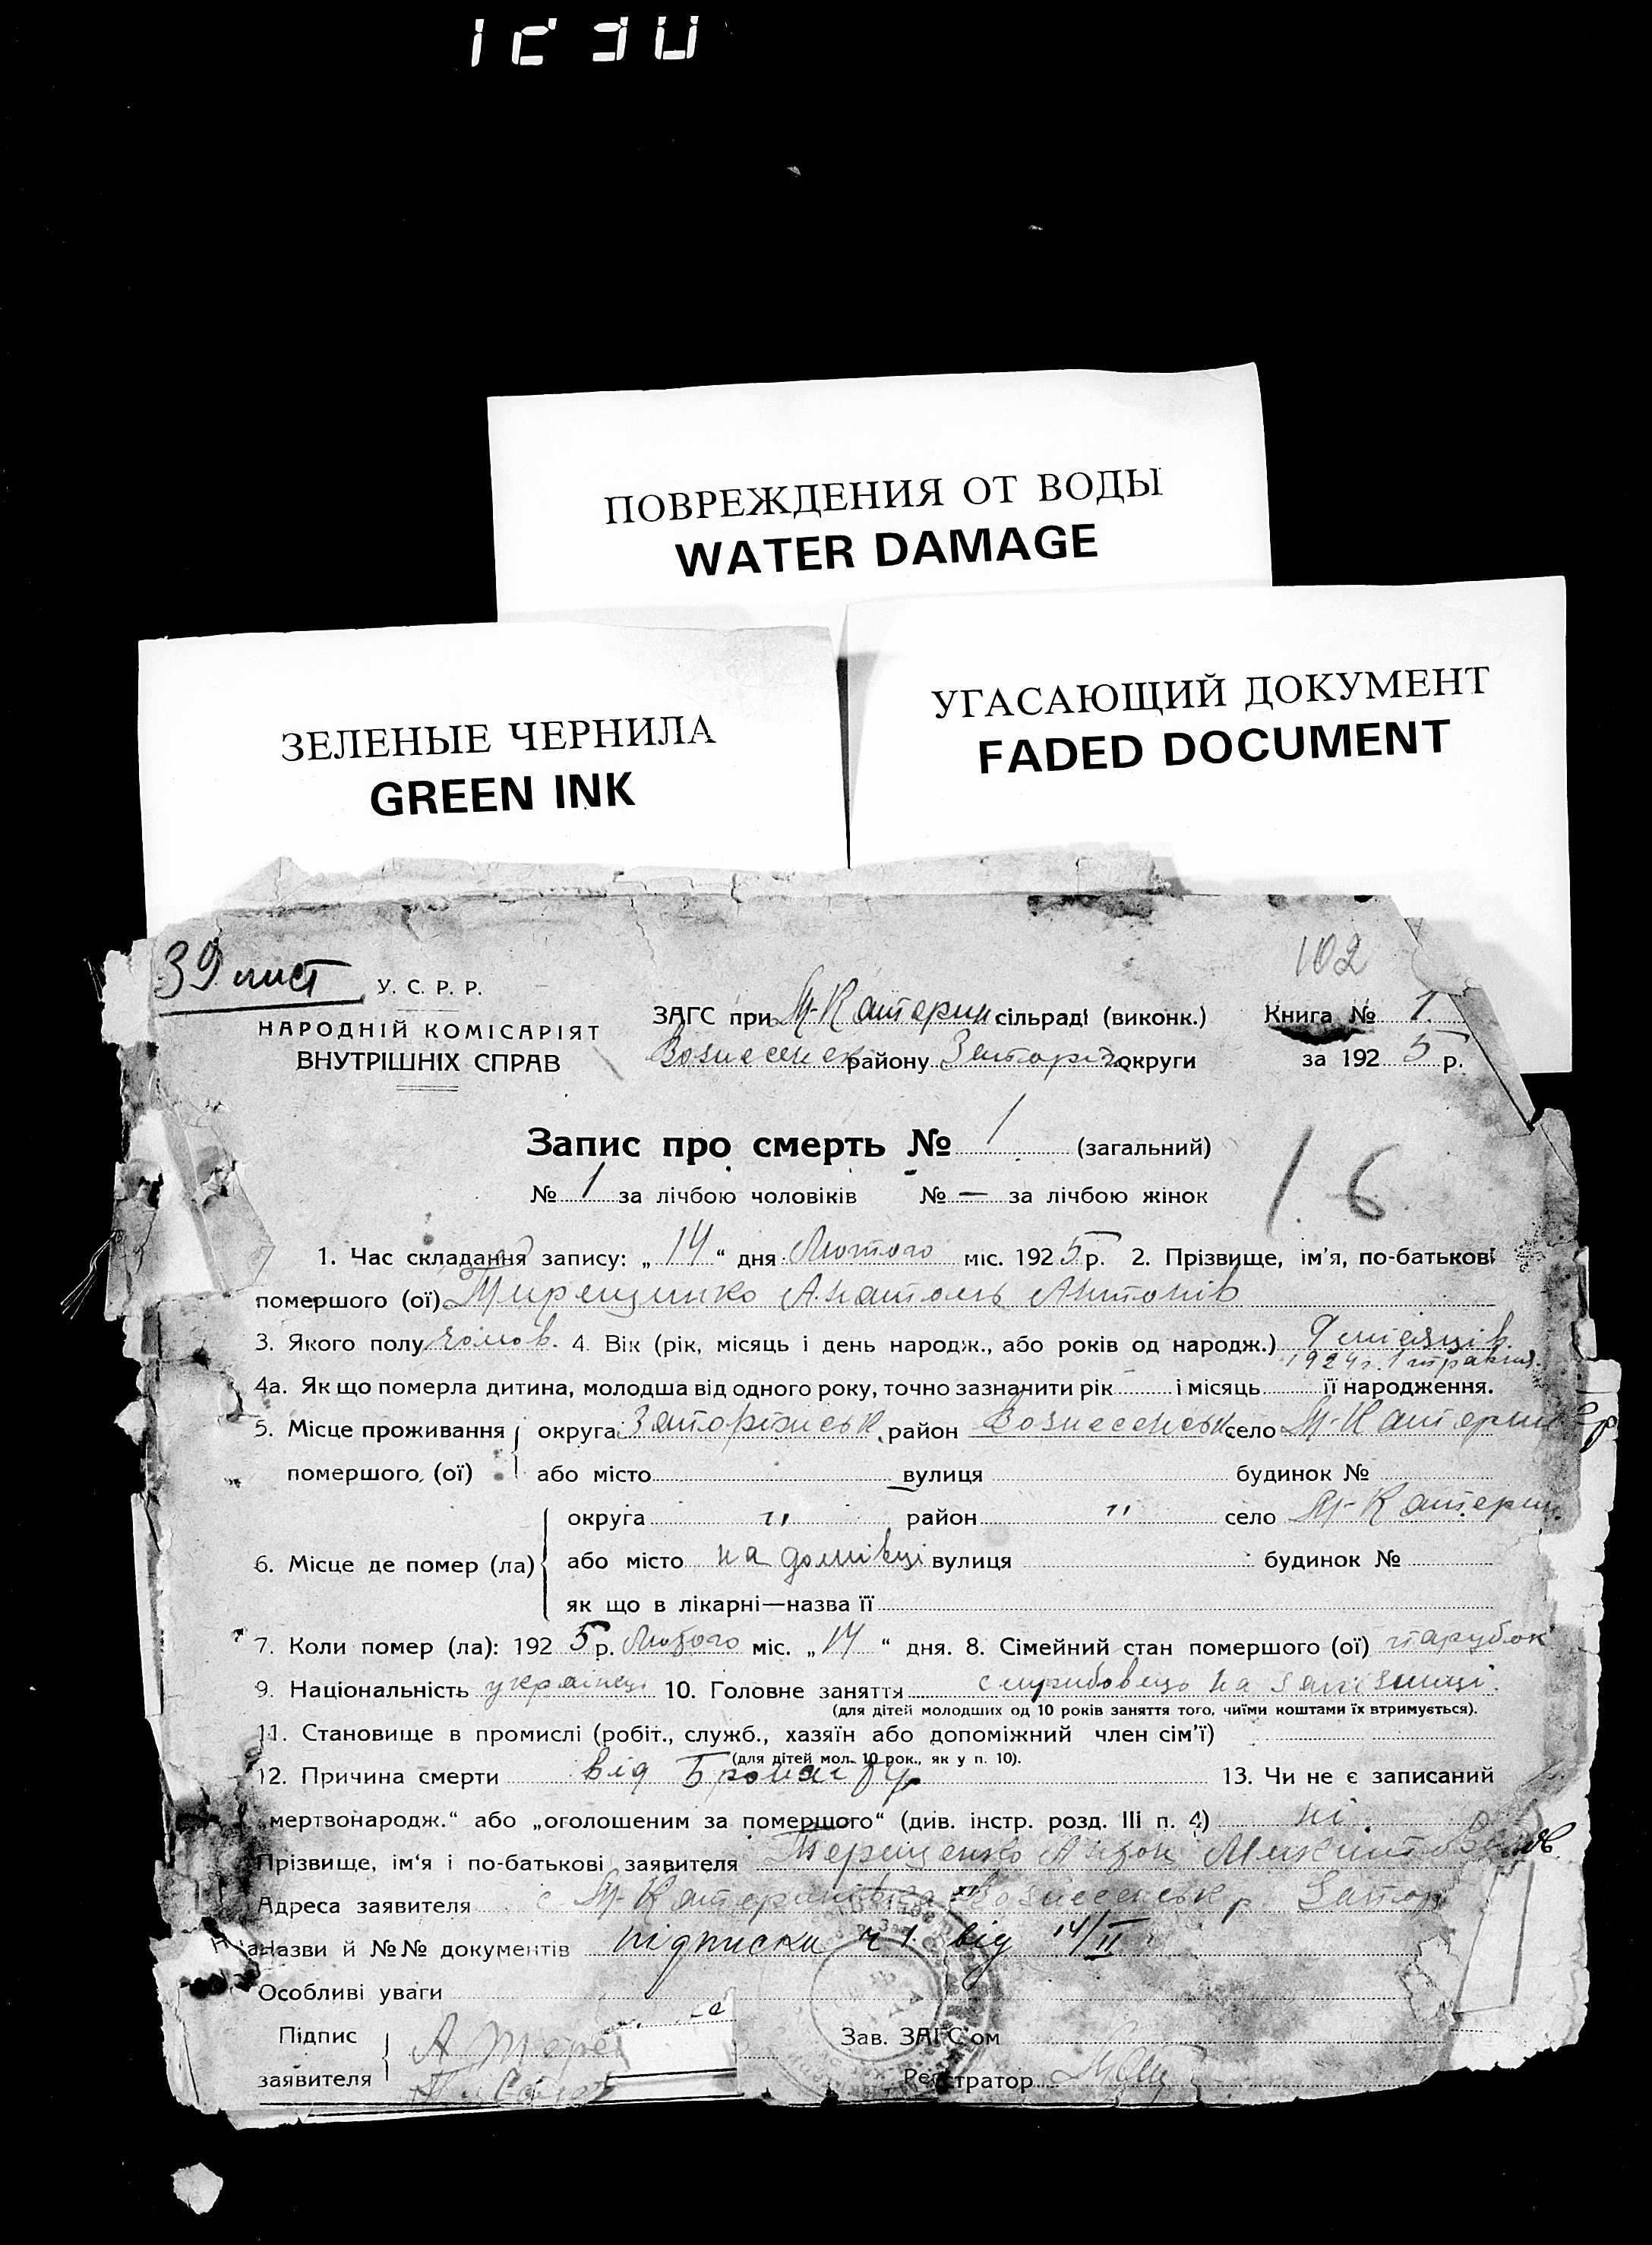 ПОВРЕЖДЕНИЯ ОТ ВОДЫ
WATER DAMAGE
ЗЕЛЕНЫЕ ЧЕРНИЛА
GREEN INK
УГАСАЮЩИЙ ДОКУМЕНТ
FADED DOCUMENT
102
39 лист
У. С. Р. Р.
НАРОДНІЙ КОМІСАРІЯТ
ВНУТРІШНІХ СПРАВ
ЗАГС при М-Катерин сільраді (виконк.)
Вознесенск району Запоріз округи
Книга № 1.
за 1925 р.
Запис про смерть № 1 (загальний)
№ 1 за лічбою чоловіків № — за лічбою жінок
1. 6.
1. Час складання запису: „14“ дня Лютого міс. 1925 р. 2. Прізвище, ім'я, по-батькові
помершого (ої) Анатоль Антонів
3. Якого полу чолов. 4. Вік (рік, місяць і день народж., або років од народж.) 9 місяців
1924 р. 1 травня.
4а. Як що померла дитина, молодша від одного року, точно зазначити рік і місяць її народження.
5. Місце проживання округа Запоріжськ, район Вознесенськ село М-Катерин
помершого, (ої) або місто вулиця будинок №
округа " район " село М-Катерин
6. Місце де помер (ла) або місто на домівці вулиця будинок №
як що в лікарні—назва її
7. Коли помер (ла): 1925 р. Лютого міс. „14“ дня. 8. Сімейний стан помершого (ої) парубок
9. Національність українец 10. Головне заняття службовець на залізниці.
(для дітей молодших од 10 років заняття того, чиїми коштами їх втримується).
11. Становище в промислі (робіт., служб., хазяїн або допоміжний член сім'ї)
(для дітей мол. 10 рок., як у п. 10).
12. Причина смерти від 13. Чи не є записаний
„мертвонародж.“ або „оголошеним за помершого“ (див. інстр. розд. III п. 4) ні
Прізвище, ім'я і по-батькові заявителя Терещенко Антон
Адреса заявителя с М-Катеринівка Вознесенськ р Запор
Назви й №№ документів підписка ч 1. від 14/II
Особливі уваги
Підпис
заявителя
А Тере
Зав. ЗАГС'ом
Реєстратор